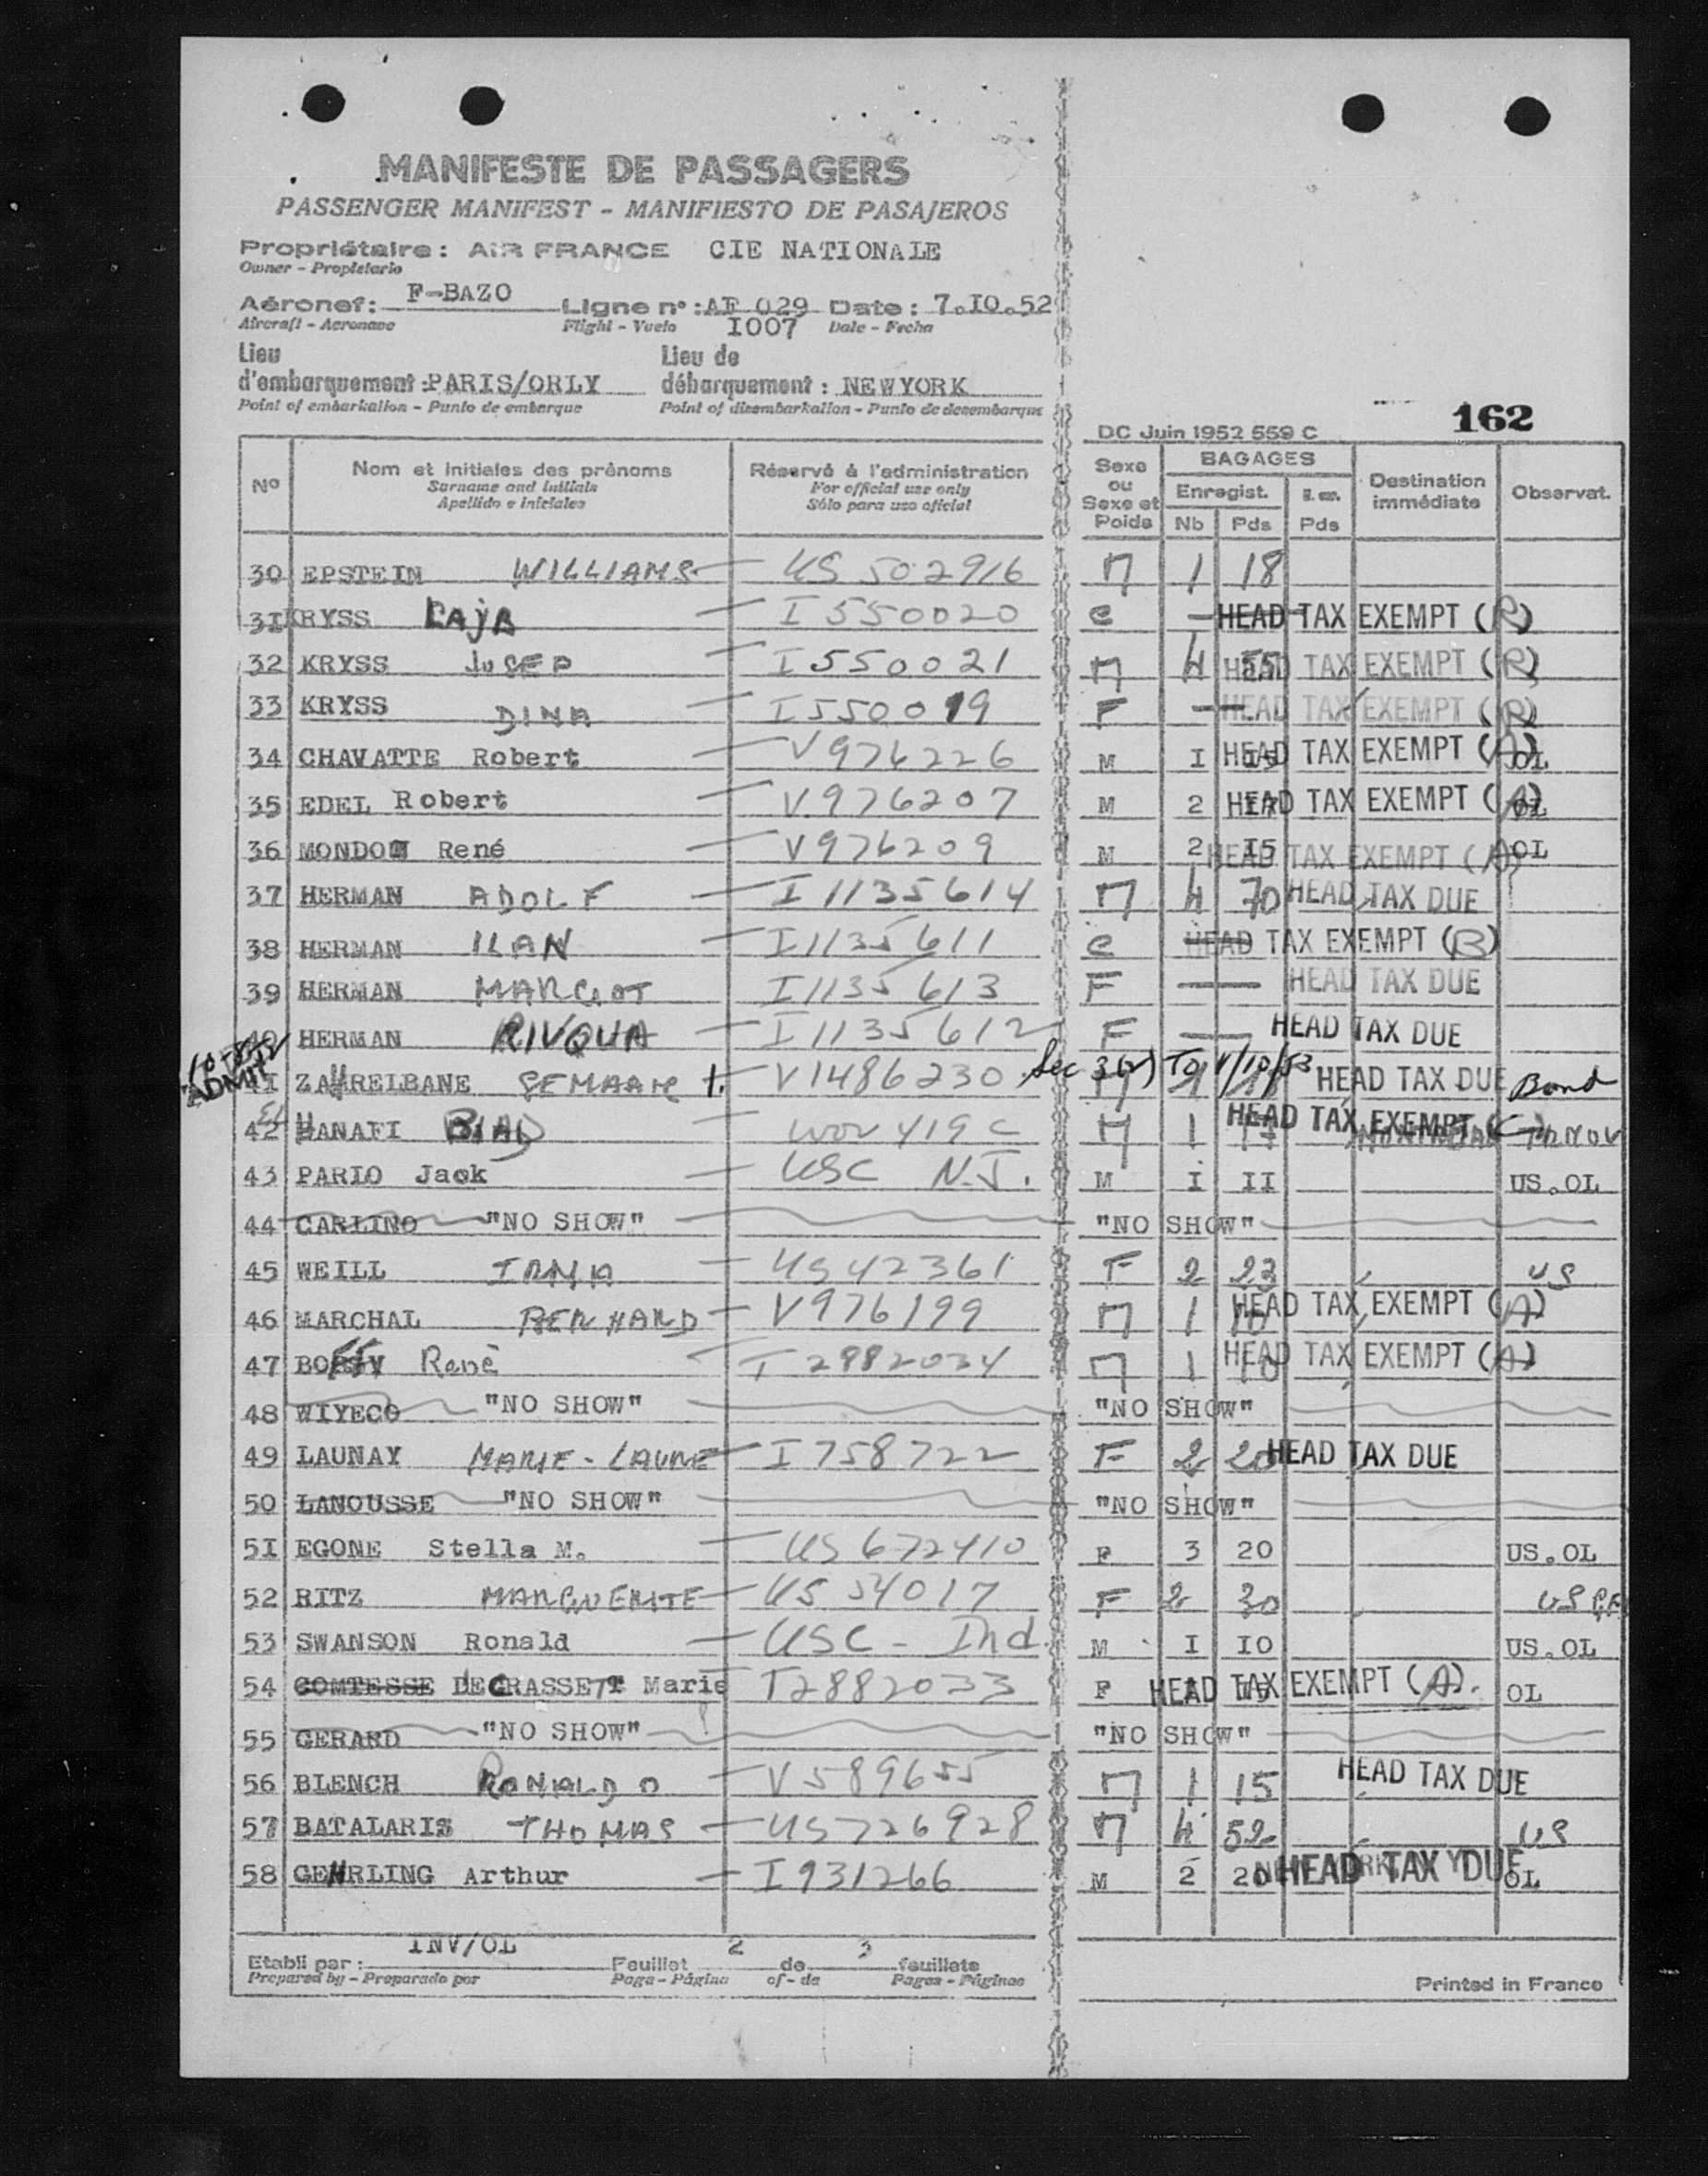 MANIFESTE DE PASSAGERS
PASSENGER MANIFEST - MANIFIESTO DE PASAJEROS
Propriétaire : AIR FRANCE CIE NATIONALE
Owner - Propietario
Aéronef: F-BAZO Ligne n° : AF 029 Date : 7.IO.52
Aircraft - Aeronave Flight - Vuelo I007 Date - Fecha
Lieu Lieu de
d'embarquement : PARIS/ORLY débarquement : NEWYORK
Point of embarkation - Punto de embarque Point of disembarkation - Punto de desembarque
162
DC Juin 1952 559 C
No Nom et initiales des prénoms Réservé à l'administration Sexe ou Sexe et Poids BAGAGES Destination immédiate Observat.
Surname and initials For official use only Enregist.
Apellido e iniciales Sólo para uso oficial Nb Pds Pds
30 EPSTEIN WILLIAMS - US 502916 M 1 18
3I KRYSS - I 550020 e - HEAD TAX EXEMPT (R)
32 KRYSS JOSEP - I 550021 M 4 55 HEAD TAX EXEMPT (R)
33 KRYSS DINA - I 550019 F - HEAD TAX EXEMPT (R)
34 CHAVATTE Robert - V 976226 M I HEAD TAX EXEMPT (A) OL
35 EDEL Robert - V.976207 M 2 17 HEAD TAX EXEMPT (A) OL
36 MONDON René - V 976209 M 2 I5 HEAD TAX EXEMPT (A) OL
37 HERMAN ADOLF - I 1135614 M 4 70 HEAD TAX DUE
38 HERMAN ILAN - I 1135611 e HEAD TAX EXEMPT (B)
39 HERMAN MARGOT I 1135613 F - HEAD TAX DUE
40 HERMAN RIVQUA - I 1135612 F - HEAD TAX DUE
ADMIT
4I ZAHREIBANE SEMAAN t. - V 1486230 Sec 3(2) TO 1/10/53 HEAD TAX DUE Bond
42 EL HANAFI - WOV 419 C M 1 HEAD TAX EXEMPT (C)
43 PARIO Jack - USC N.J. M I II US.OL
44 CARLINO "NO SHOW" "NO SHOW"
45 WEILL IRMA - US 42361 F 2 23 US
46 MARCHAL BERNARD - V 976199 M 1 10 HEAD TAX EXEMPT (A)
47 René - T 2882034 M 1 10 HEAD TAX EXEMPT (A)
48 WIYECO "NO SHOW" "NO SHOW"
49 LAUNAY MARIE-LAURE - I 758722 F 2 20 HEAD TAX DUE
50 LANOUSSE "NO SHOW" "NO SHOW"
5I EGONE Stella M. - US 672410 F 3 20 US.OL
52 RITZ MARGUERITE - US 54017 F 2 30 US
53 SWANSON Ronald - USC - Ind. M I IO US.OL
54 COMTESSE DE GRASSE Marie T2882033 F HEAD TAX EXEMPT (A). OL
55 GERARD "NO SHOW" "NO SHOW"
56 BLENCH RONALD O - V 589655 M 1 15 HEAD TAX DUE
57 BATALARIS THOMAS - US 726928 M 4 52 US
58 GEHRLING Arthur - I 931266 M 2 20 HEAD TAX DUE OL
Etabli par : INV/OL Feuillet 2 de 3 feuillets
Prepared by - Preparado por Page - Página of - de Pages - Páginas
Printed in France